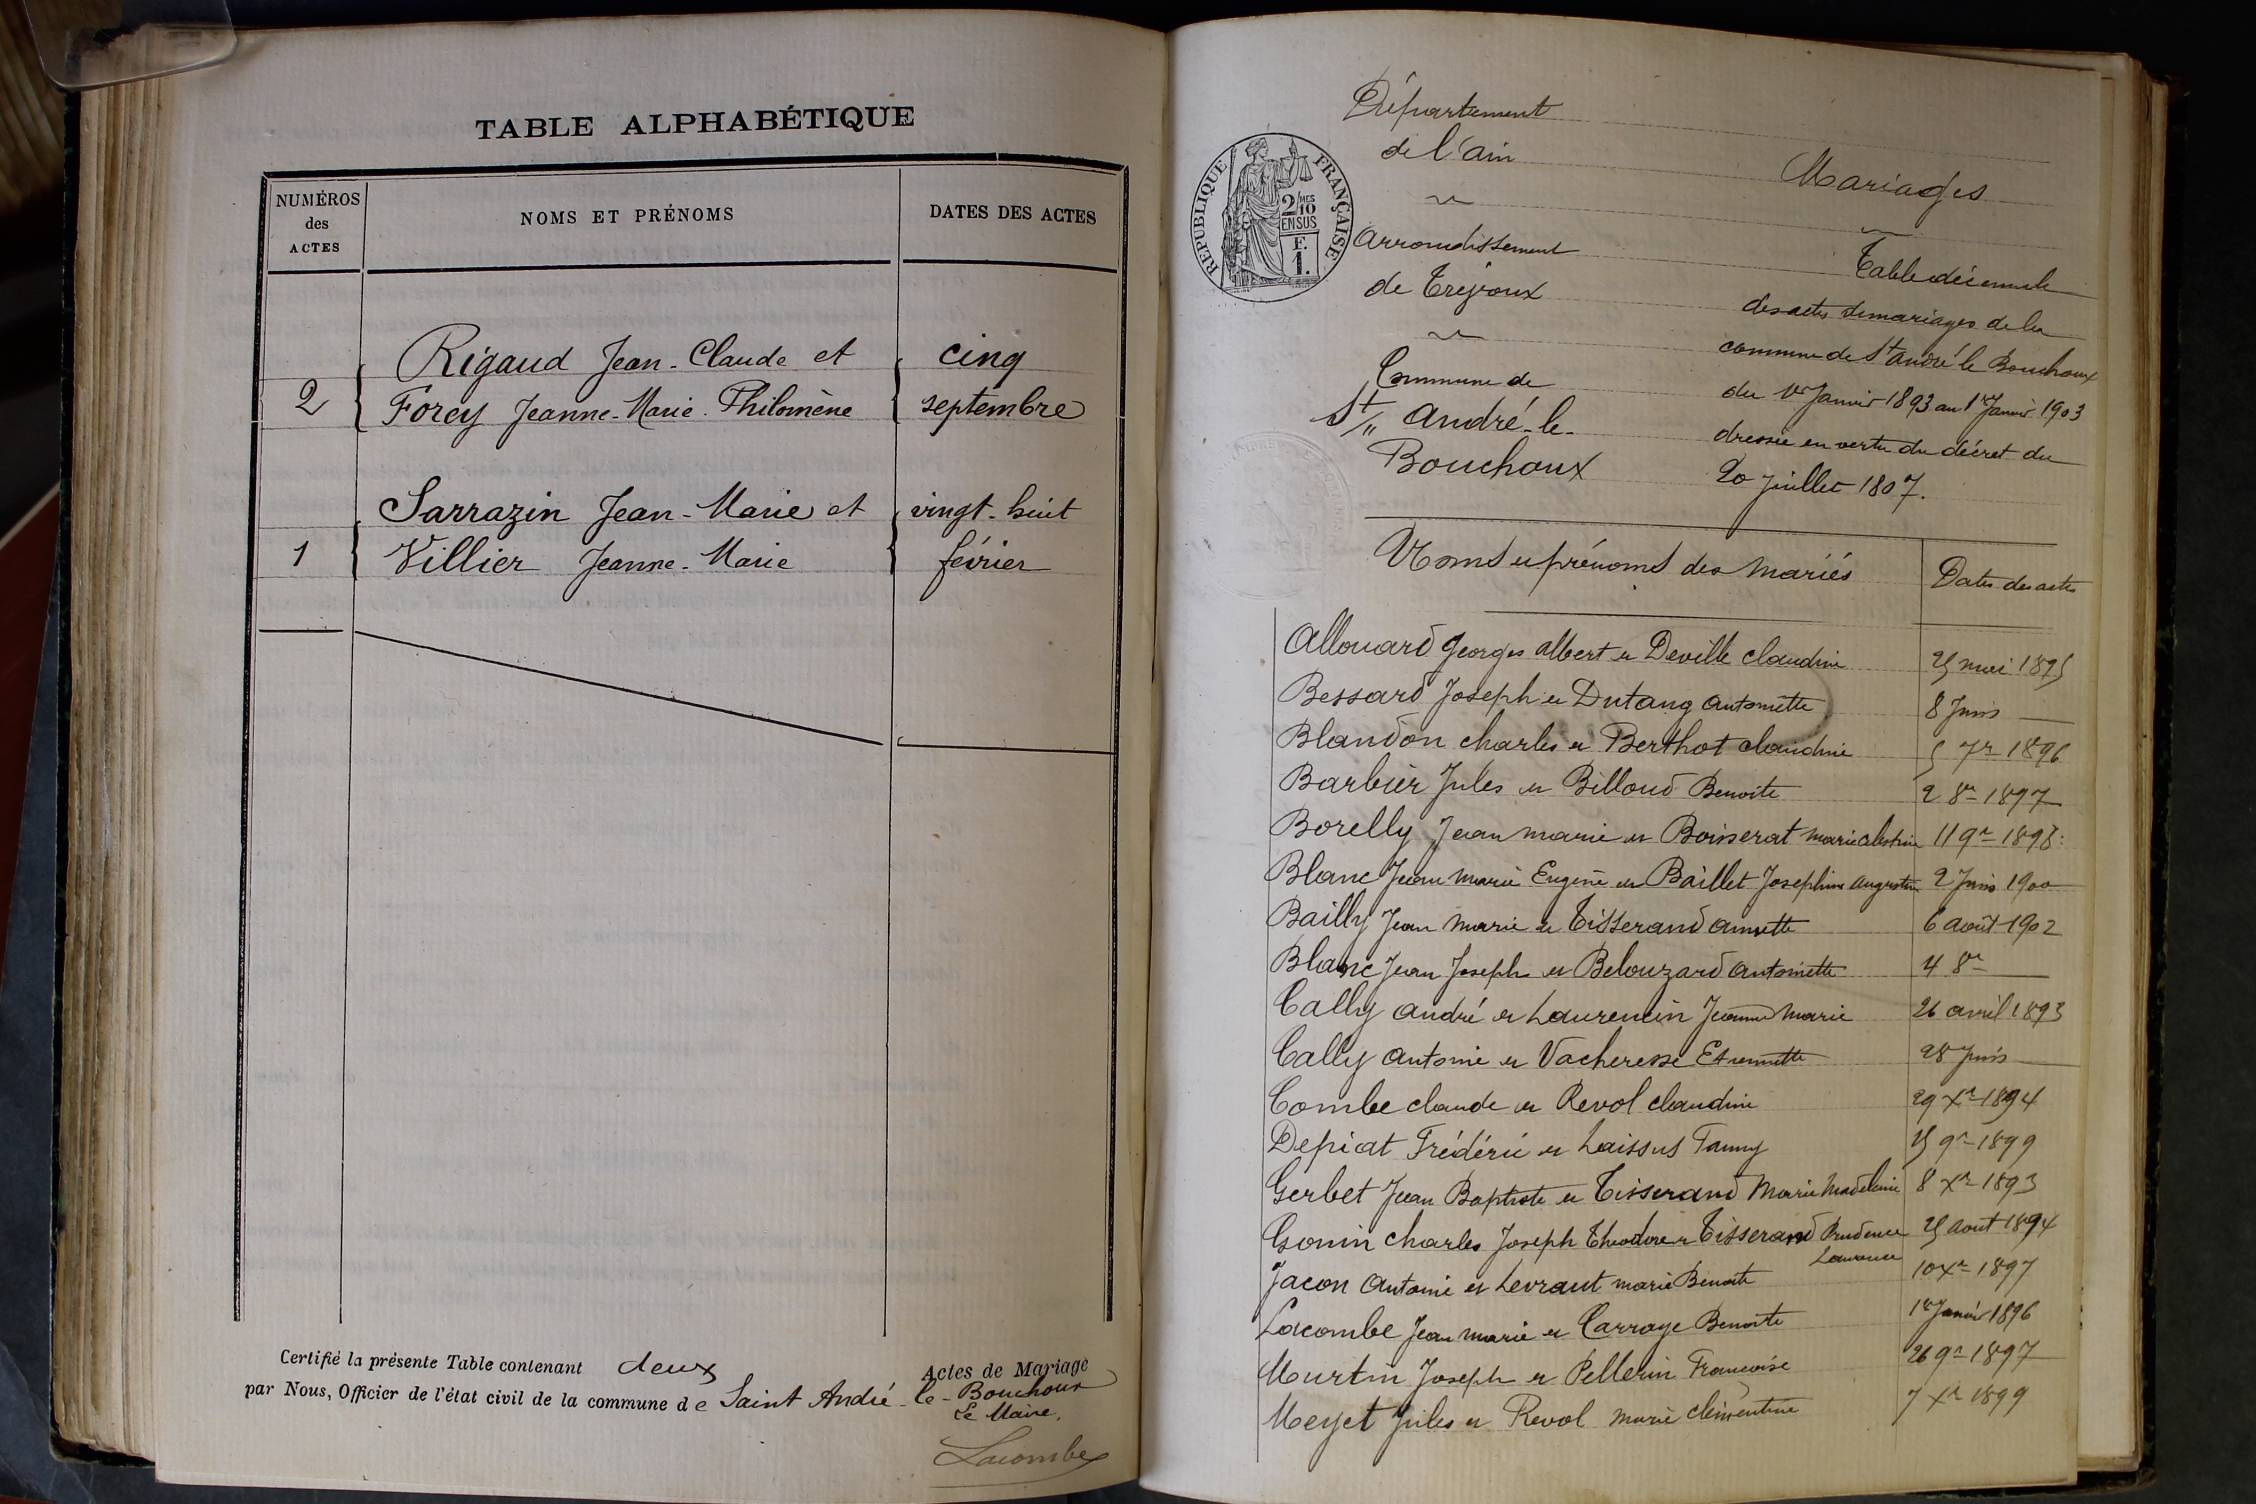 TABLE ALPHABÉTIQUE
NUMÉROS
des
ACTES
NOMS ET PRÉNOMS
DATES DES ACTES
Rigaud Jean-Claude et cinq
2 Forey Jeanne-Marie-Philomène septembre
Sarrazin Jean-Marie et vingt-huit
1 Villier Jeanne-Marie février
Certifié la présente Table contenant deux Actes de Mariage
par Nous, Officier de l'état civil de la commune de Saint André-le-Bouchoux
Le Maire,
Lacombe
RÉPUBLIQUE FRANÇAISE
2/10
MES
EN SUS
F.
1.
Département
de l'ain
Arrondissement
de Trévoux
Commune de
St André-le-
Bouchoux
Mariages
Table décennale
des actes de mariages de la
commune de St André le Bouchoux
du 1er Janvier 1893 au 1er Janvier 1903
dressée en vertu du décret du
20 Juillet 1807.
Noms et prénoms des mariés Dates des actes
Allouard Georges Albert et Deville Claudine 25 mai 1895
Bessard Joseph et Dutang Antoinette 8 Juin
Blandon Charles et Berthot Claudine 5 7re 1896
Barbier Jules et Billoud Benoite 2 8re 1897
Borelly Jean Marie et Boisserat Marie 11 9re 1898
Blanc Jean Marie Eugène et Baillet Josephine Augustine 2 Juin 1900
Bailly Jean Marie et Tisserand Annette 6 août 1902
Blanc Jean Joseph et Belouzard Antoinette 4 8re
Cally André et Laurencin Jeanne Marie 26 avril 1893
Cally Antoine et Vacheresse Etiennette 28 Juin
Combe Claude et Revol Claudine 29 Xre 1894
Depicat Frédéric et Laissus Fanny 25 9re 1899
Gerbet Jean Baptiste et Tisserand Marie Madeleine 8 Xre 1893
Gonin Charles Joseph Théodore et Tisserand Prudence 25 aout 1894
Laurence
Jacon Antoine et Levraut Marie Benoite 10 Xre 1897
Lacombe Jean Marie et Carraye Benoite 18 Janvier 1896
Murtin Joseph et Pellerin Francoise 26 9re 1897
Meyet Jules et Revol Marie Clémentine 7 Xre 1899